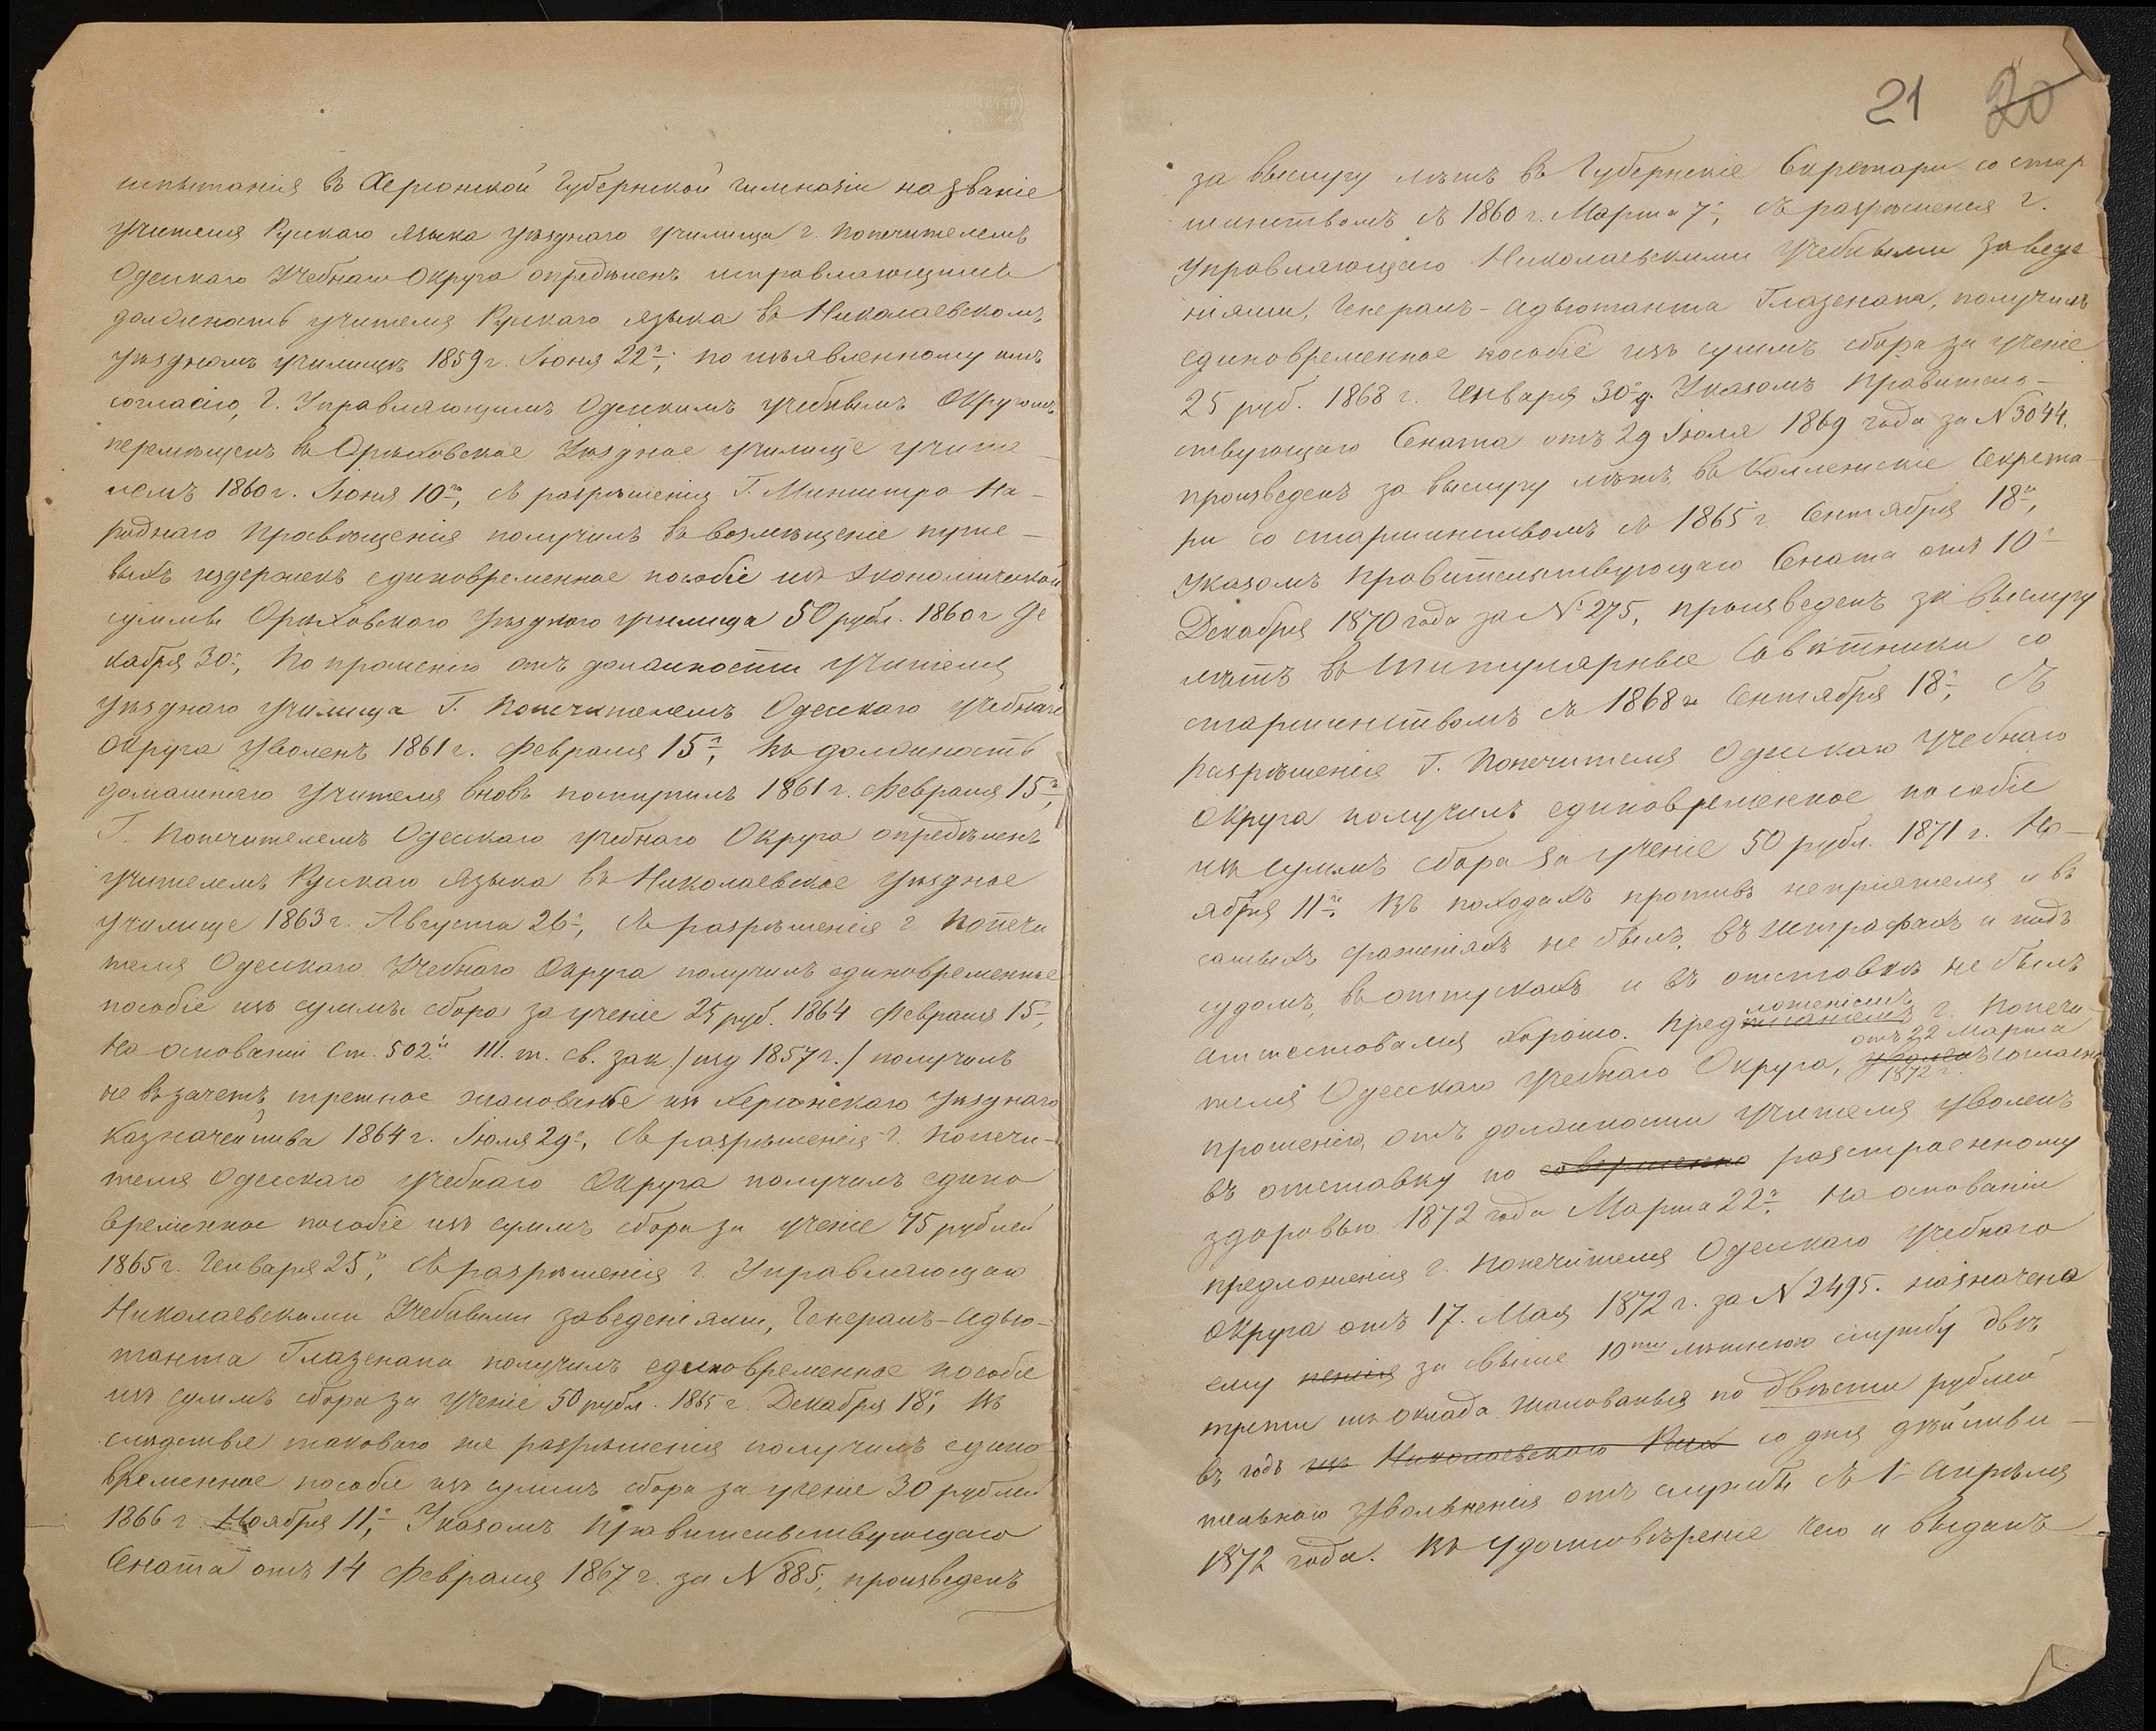 испытанія въ Херсонской Губернской гимназіи названіе
учителя Русскаго языка уѣзднаго училища г. Попечителемъ
Одесскаго Учебнаго Округа опредѣленъ исправляющимъ
должность учителя Русскаго языка въ Николаевскомъ
уѣздномъ училищѣ 1859 г. Іюня 22го; по изъявленному имъ
согласію, Г. Управляющимъ Одесскимъ учебнымъ Округомъ
перемѣщенъ въ Орѣховское Уѣздное училище учите-
лемъ 1860 г. Іюня 10го, съ разрѣшенія Г. Министра На-
роднаго Просвѣщенія получилъ въ возмѣщеніе путе-
выхъ издержекъ единовременное пособіе изъ экономической
суммы Орѣховского уѣздного училища 50 рубл. 1860 г Де
кабря 30го, по прошенію отъ должности учителя
уѣзднаго училища Г. Попечителемъ Одесскаго учебнаго
Округа уволенъ 1861 г. Февраля 15го, въ должность
домашняго учителя вновь поступилъ 1861 г. Февраля 15го,
Г. Попечителемъ Одесскаго учебнаго Округа опредѣленъ
учителемъ Русскаго языка въ Николаевское уѣздное
училище 1863 г. Августа 26го, съ разрѣшенія г. Попечи
теля Одесскаго Учебнаго Округа получилъ единовременное
пособіе изъ суммы сбора за ученіе 25 руб. 1864 Февраля 15го,
на основаніи ст. 502й III. т. св. зак. /изд 1857 г./ получилъ
не въ зачетъ третное жалованье изъ Херсонскаго уѣзднаго
Казначейства 1864 г. Іюля 29го, съ разрѣшенія г. Попечи-
теля Одесскаго учебнаго Округа получилъ едино
временное пособіе изъ суммъ сбора за ученіе 75 рублей
1865 г. Генваря 25го, съ разрѣшенія г. Управляющаго
Николаевскими Учебными заведеніями, Генералъ-Адъю-
танта Глазенапа получилъ единовременное пособіе
изъ суммъ сбора за ученіе 50 рубл. 1865 г. Декабря 18го, въ
слѣдствіе таковаго же разрѣшенія получилъ едино
временное пособіе изъ суммъ сбора за ученіе 30 рублей
1866 г. Ноября 11го, Указомъ Правительствующаго
Сената отъ 14 Февраля 1867 г. за № 885, произведенъ
21 20
за выслугу лѣтъ въ Губернскіе Секретари со стар
шинствомъ съ 1860 г. Марта 7го, съ разрѣшенія г.
Управляющаго Николаевскими Учебными заведе-
ніями, Генералъ-Адъютанта Глазенапа, получилъ
единовременное пособіе изъ суммъ сбора за ученіе
25 руб. 1868 г. Генваря 30го. Указомъ Правитель-
ствующаго Сената отъ 29 Іюля 1869 года за № 3044,
произведенъ за выслугу лѣтъ въ Коллежскіе Секрета-
ри со старшинствомъ съ 1865 г. Сентября 18го,
Указомъ Правительствующаго Сената отъ 10го
Декабря 1870 года за № 275, произведенъ за выслугу
лѣтъ въ Титулярные Совѣтники со
старшинствомъ съ 1868 г. Сентября 18го, съ
разрѣшенія Г. Попечителя Одесскаго Учебнаго
Округа получилъ единовременное пособіе
изъ суммъ сбора за ученіе 50 рубл. 1871 г. Но-
ября 11го. Въ походахъ противъ непріятеля и въ
самыхъ сраженіяхъ не былъ, въ штрафахъ и подъ
судомъ, въ отпускахъ и въ отставкѣ не былъ
аттестовался хорошо. Предложеніемъ г. Попечи-
отъ 22 Марта
теля Одесскаго учебнаго Округа, уволенъ согласно
1872 г.
прошенію, отъ должности учителя уволенъ
въ отставку по совершенно разстроенному
здоровью 1872 года Марта 22го. На основаніи
предложенія г. Попечителя Одесскаго учебнаго
Округа отъ 17. Мая 1872 г. за № 2495. назначена
ему пенсія за свыше 10ти лѣтнюю службу двѣ
трети изъ оклада жалованья по двѣсти рублей
въ годъ изъ Николаевскаго со дня дѣйстви-
тельнаго увольненія отъ службы съ 1го Апрѣля
1872 года. Въ удостовѣреніе чего и выданъ